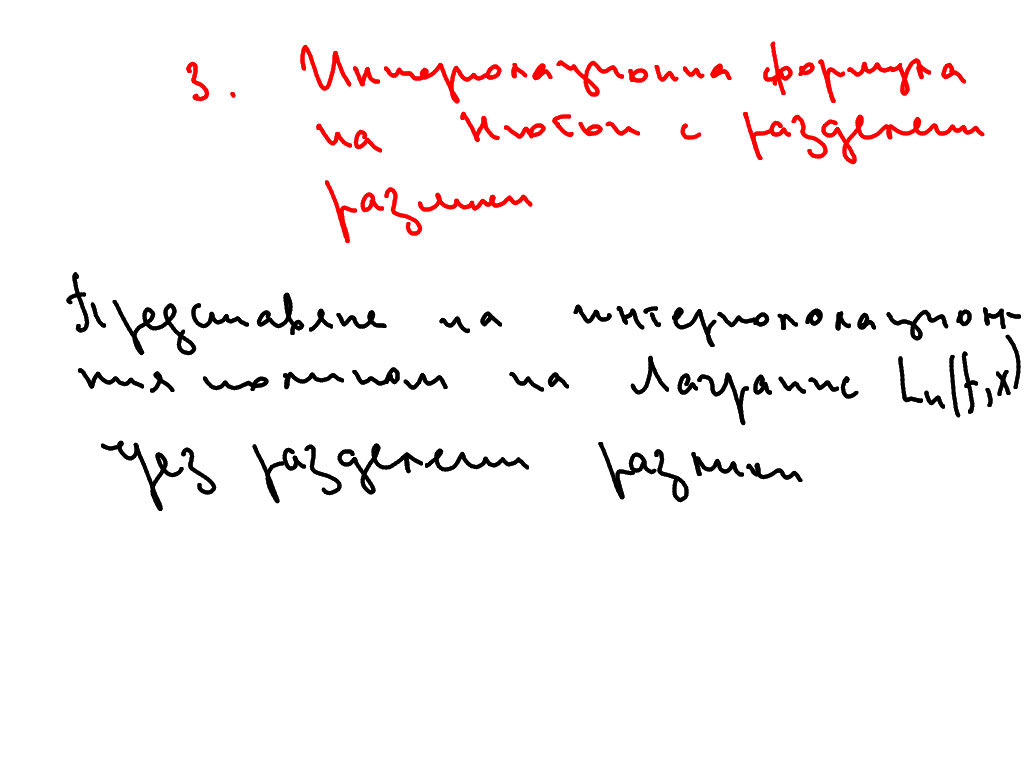 3. Интерполационна формула
на Нютон с разделени
разлики
Представяне на интерполоационн-
ния полином на Лагранж Ln(f,x)
чрез разделени разлики